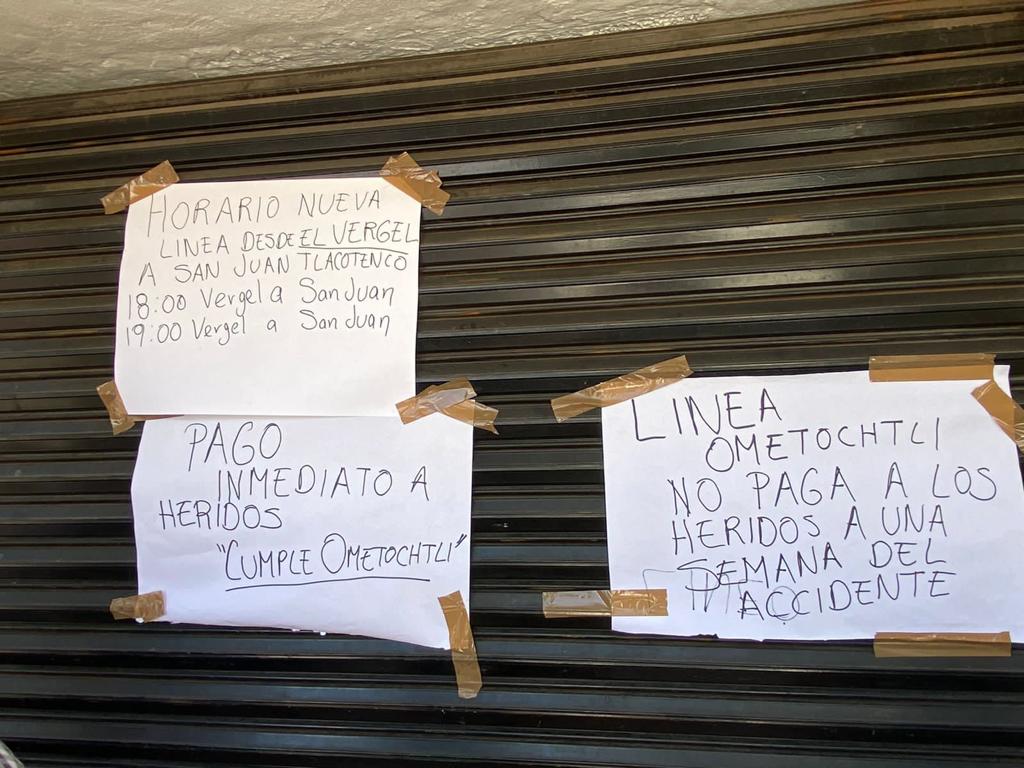 HORARIO NUEVA
LINEA DESDE EL VERGEL
A SAN JUAN TLACOTENCO
18:00 Vergel a San Juan
19:00 Vergel a San Juan
PAGO
INMEDIATO A
HERIDOS
"CUMPLE OMETOCHTLI"
LINEA
OMETOCHTLI
NO PAGA A LOS
HERIDOS A UNA
SEMANA DEL
ACCIDENTE